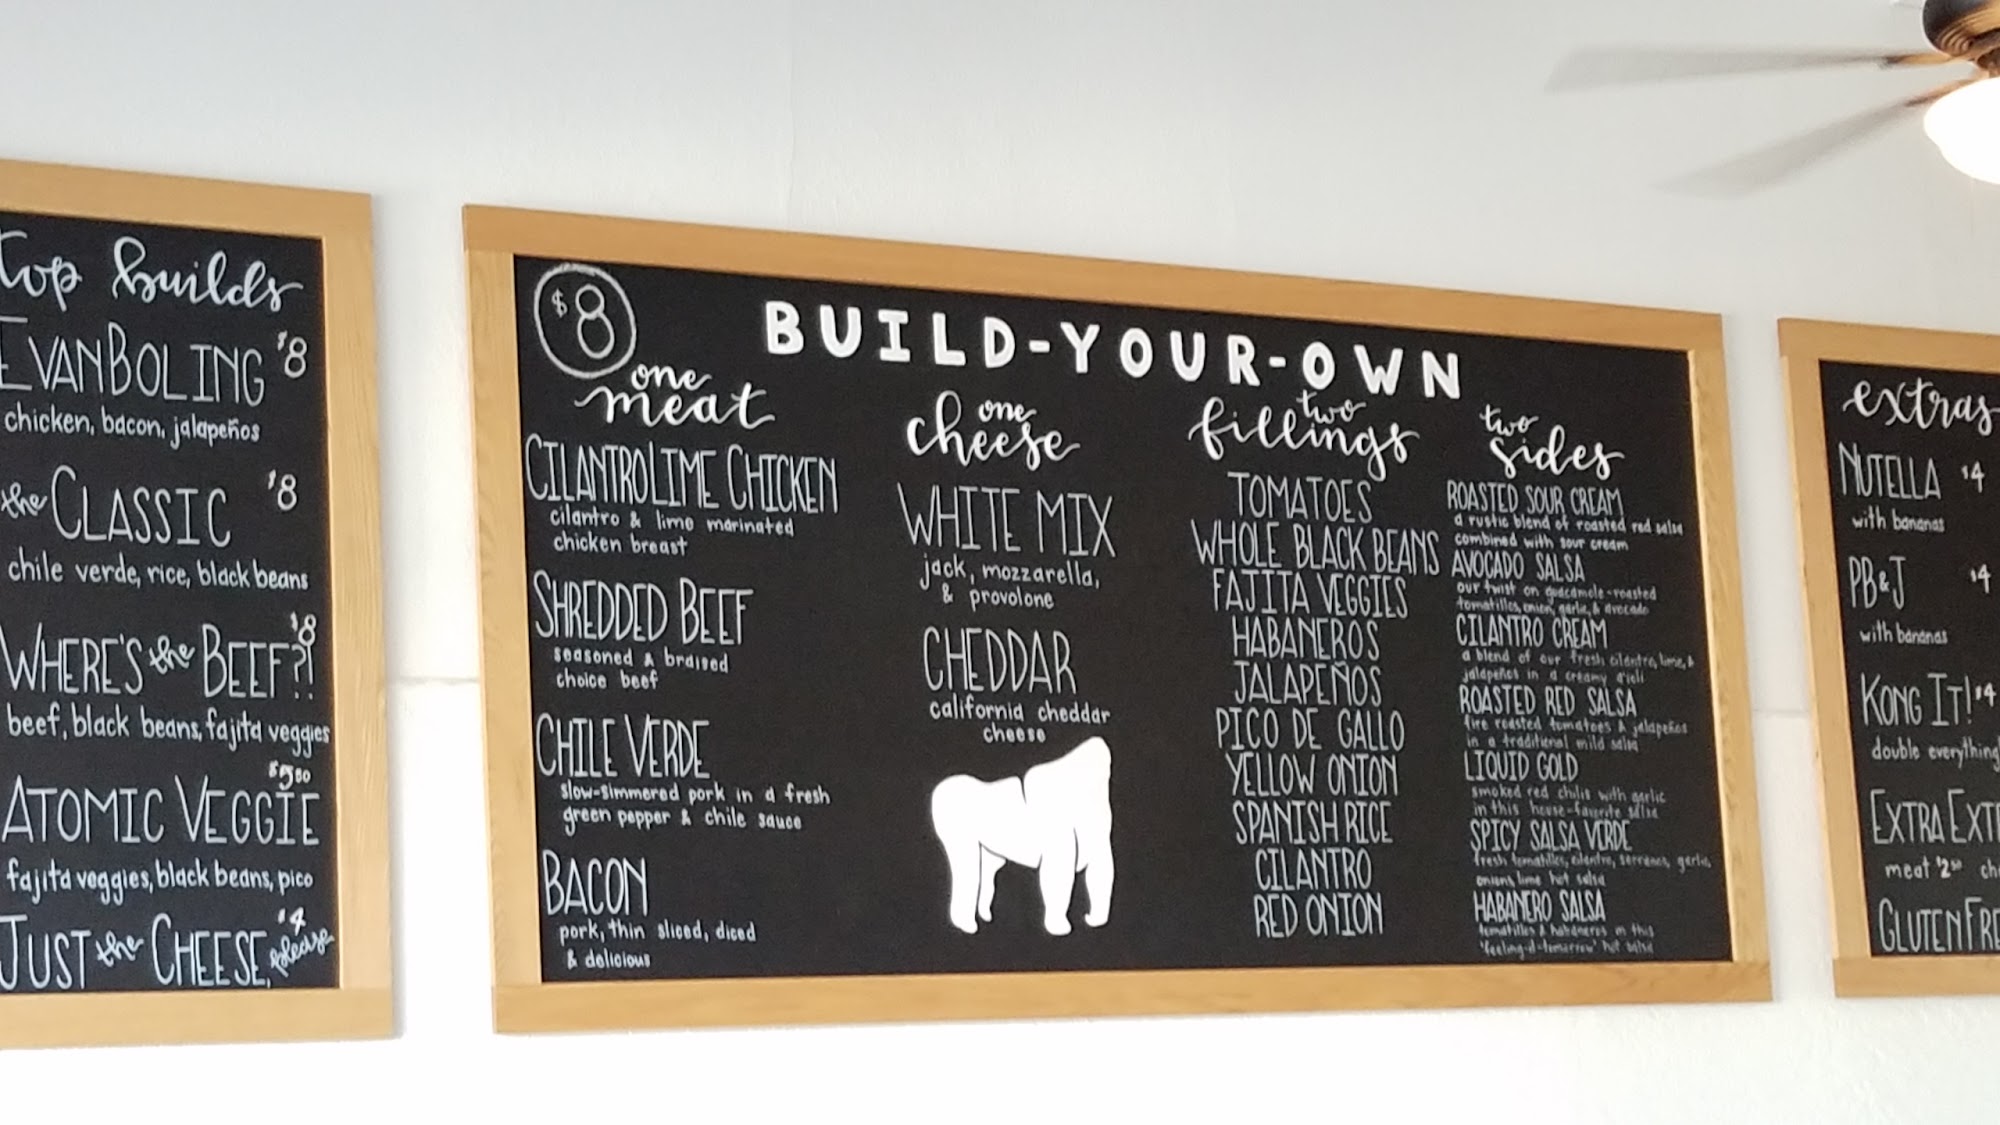 top builds
EVANBOLING $8
chicken, bacon, jalapeños
the CLASSIC $8
chile verde, rice, black beans
WHERE'S the BEEF?! $8
beef, black beans, fajita veggies
ATOMIC VEGGIE
fajita veggies, black beans, pico
JUST the CHEESE, please $4
$8
BUILD-YOUR-OWN
one
meat
CILANTRO LIME CHICKEN
cilantro & lime marinated
chicken breast
SHREDDED BEEF
seasoned & braised
choice beef
CHILE VERDE
slow-simmered pork in a fresh
green pepper & chile sauce
BACON
pork, thin sliced, diced
& delicious
one
cheese
WHITE MIX
jack, mozzarella,
& provolone
CHEDDAR
california cheddar
cheese
two
fillings
TOMATOES
WHOLE BLACK BEANS
FAJITA VEGGIES
HABANEROS
JALAPEÑOS
PICO DE GALLO
YELLOW ONION
SPANISH RICE
CILANTRO
RED ONION
two
sides
ROASTED SOUR CREAM
a rustic blend of roasted red salsa
combined with sour cream
AVOCADO SALSA
our twist on guacamole-roasted
tomatillos, onion, garlic, & avocado
CILANTRO CREAM
a blend of our fresh cilantro, lime, &
jalapeños in a creamy
ROASTED RED SALSA
fire roasted tomatoes & jalapeños
in a traditional mild salsa
LIQUID GOLD
smoked red chilis with garlic
in this house-favorite salsa
SPICY SALSA VERDE
fresh tomatillos, cilantro, serranos, garlic,
onions, lime hot salsa
HABANERO SALSA
tomatillos & habaneros in this
hot salsa
extras
NUTELLA $4
with bananas
PB&J $4
with bananas
KONG IT! $4
double everything
EXTRA
meat $2